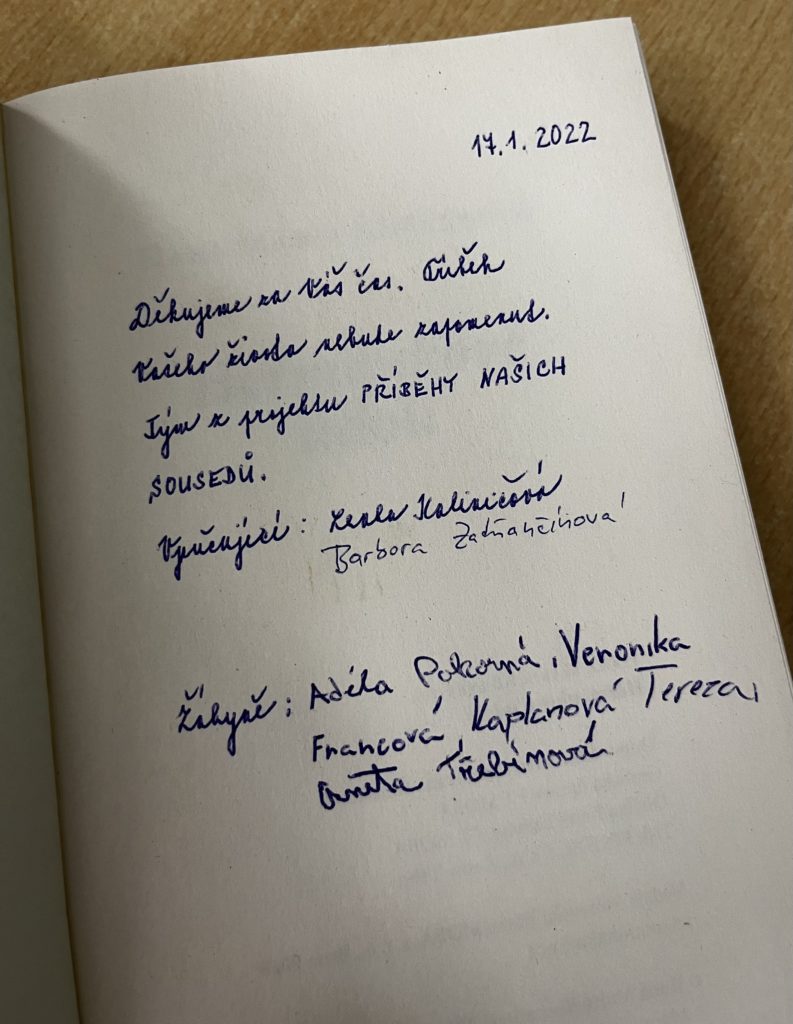 17.1. 2022
Děkujeme za Váš čas. Příběh
Vašeho života nebude zapomenut.
Tým z projektu PŘÍBĚHY NAŠICH
SOUSEDŮ.
Vyučující: Lenka Kaliničová
Barbora
Žákyně: Adéla Pokorná, Veronika
Francová, Kaplanová Tereza,
Aneta Třebínová